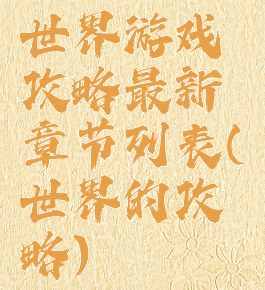 世界游戏
攻略最新
章节列表(
世界的攻
略)